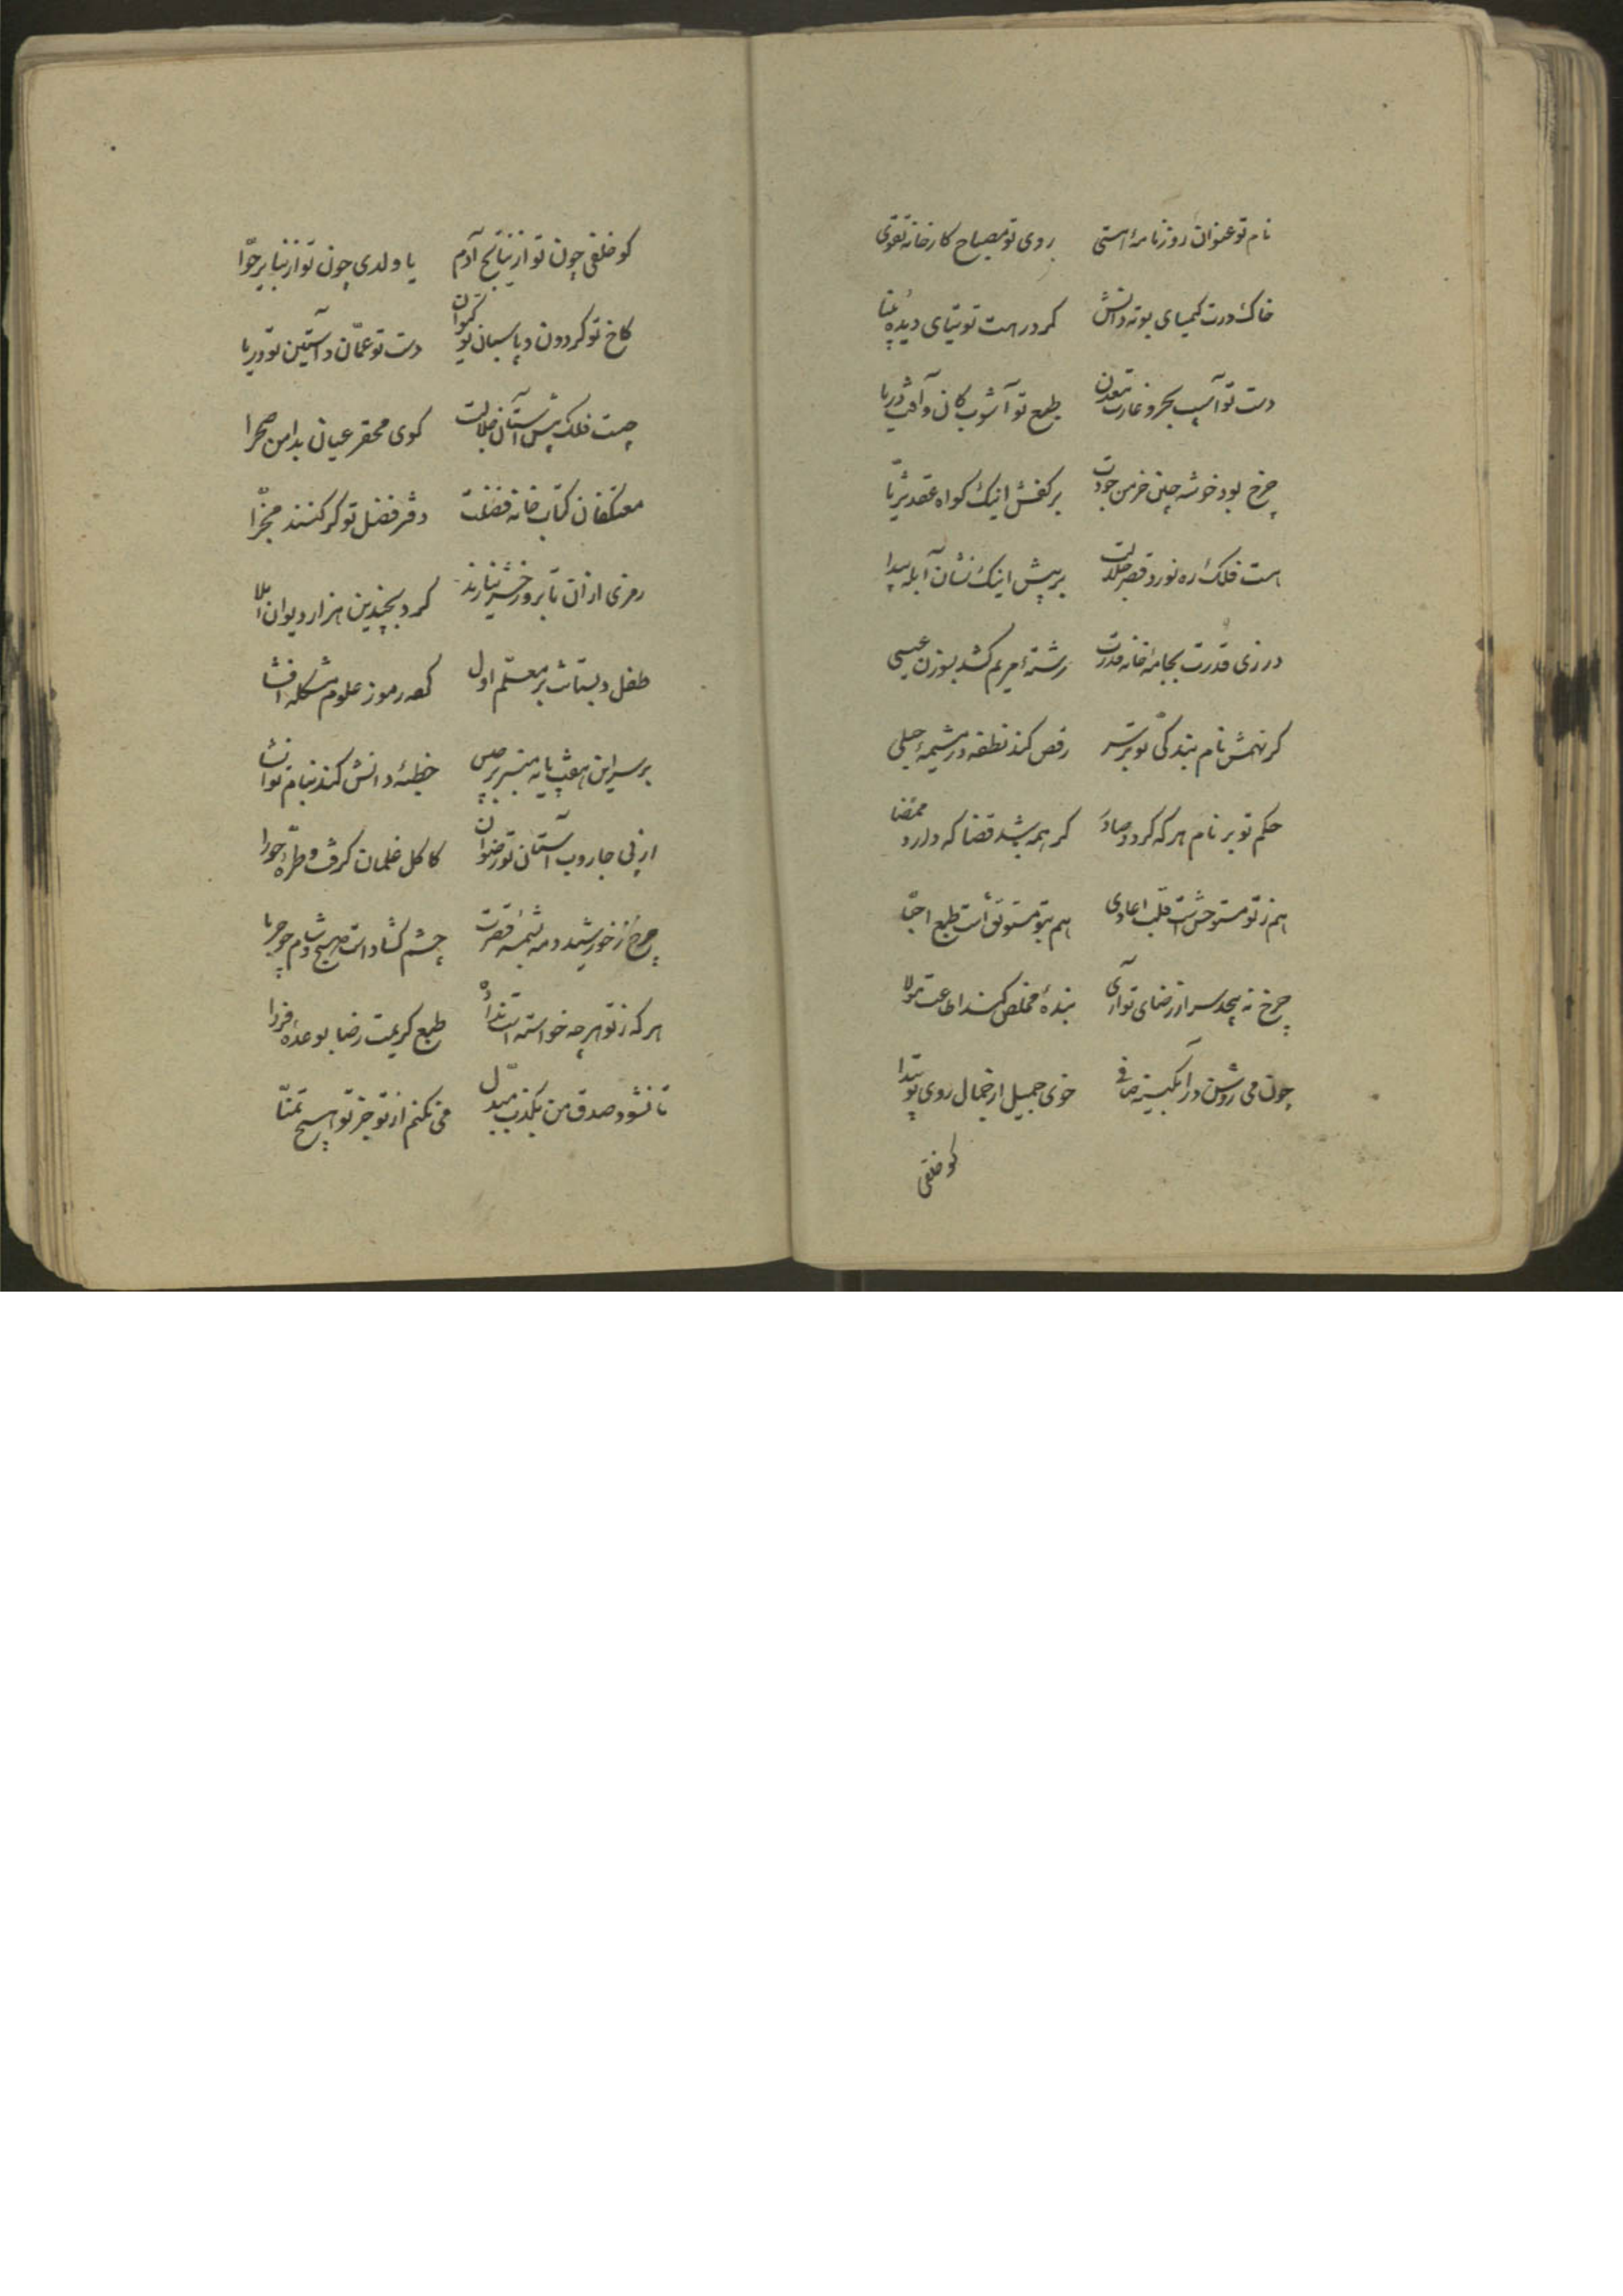 نام تو عنوان روزنامهٔ هستی روی تو مصباح کارخانه تقوی
خاک درت کیمیای بوته دانش گرد رهت توتیای دیدهٔ بینا
دست تو آسیب بحر و غارت معدن طبع تو آشوب کان و آفت دریا
چرخ بود خوشه چین خرمن جودت بر کفش اینک گواه عقد ثریّا
هست فلک ره نورد قصر جلالت بر پیش اینک نشان آبله پیدا
درزی قدرت بجامه خانه قدرت رشتهٔ مریم کشد بسوزن عیسی
گر نهمش نام بندگی تو بر سر رقص کند نطفه در مشیمهٔ حبلی
حکم تو بر نام هر که گردد صادر گر همه باشد قضا که دارد ممضا
هم ز تو مستوحش است قلب اعادی هم بتو مستوثق است طبع احبّا
چرخ نه پیچد سر از رضای تو آری بندهٔ مخلص کند اطاعت مولا
چون می روشن در آبگینه صافی خوی جمیل از جمال روی تو پیدا
کو خلقی
کو خلقی چون تو از نتایج آدم یا ولدی چون تو از نبایر حوّا
کاخ تو گردون و پاسبان تو کیوان دست تو عمّان و آستین تو دریا
چیست فلک پیش آستان جلالت گوی محقر عیان بدامن صحرا
معتکفان کتاب خانه فضلت دفتر فضل تو گر کنند مجزّا
رمزی از آن تا بروز حشر نیارند کرد بچندین هزار دیوان املا
طفل دبستانت بر معلّم اول کرده رموز علوم مشکله افشا
بر سر این هفت پایه منبر برجیس خطبهٔ دانش کند بنام تو انشا
از پی جاروب آستان تو رضوان کاکل غلمان گرفت و طرّهٔ حورا
چرخ ز خورشید و مه بشمسه قصرت چشم گشاد است صبح و شام چو حربا
هر که ز تو هر چه خواسته است نداده طبع کریمت رضا بوعدهٔ فردا
تا نشود صدق من بکذب مبدّل می نکنم از تو جز تو هیچ تمنّا